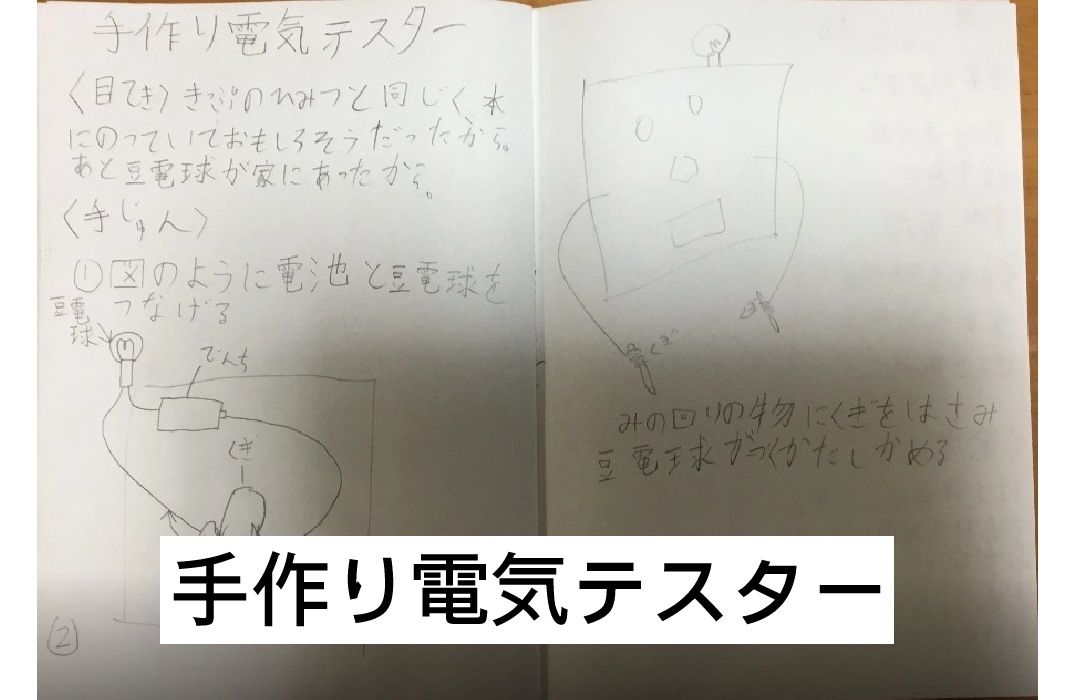 手作り電気テスター
〈目てき〉きっぷのひみつと同じく、本
にのっていておもしろそうだったから。
あと豆電球が家にあったから。
〈手じゅん〉
①図のように電池と豆電球を
つなげる
豆電
球
でんち
くぎ
②
くぎ
みの回りの物にくぎをはさみ
豆電球がつくかたしかめる
手作り電気テスター